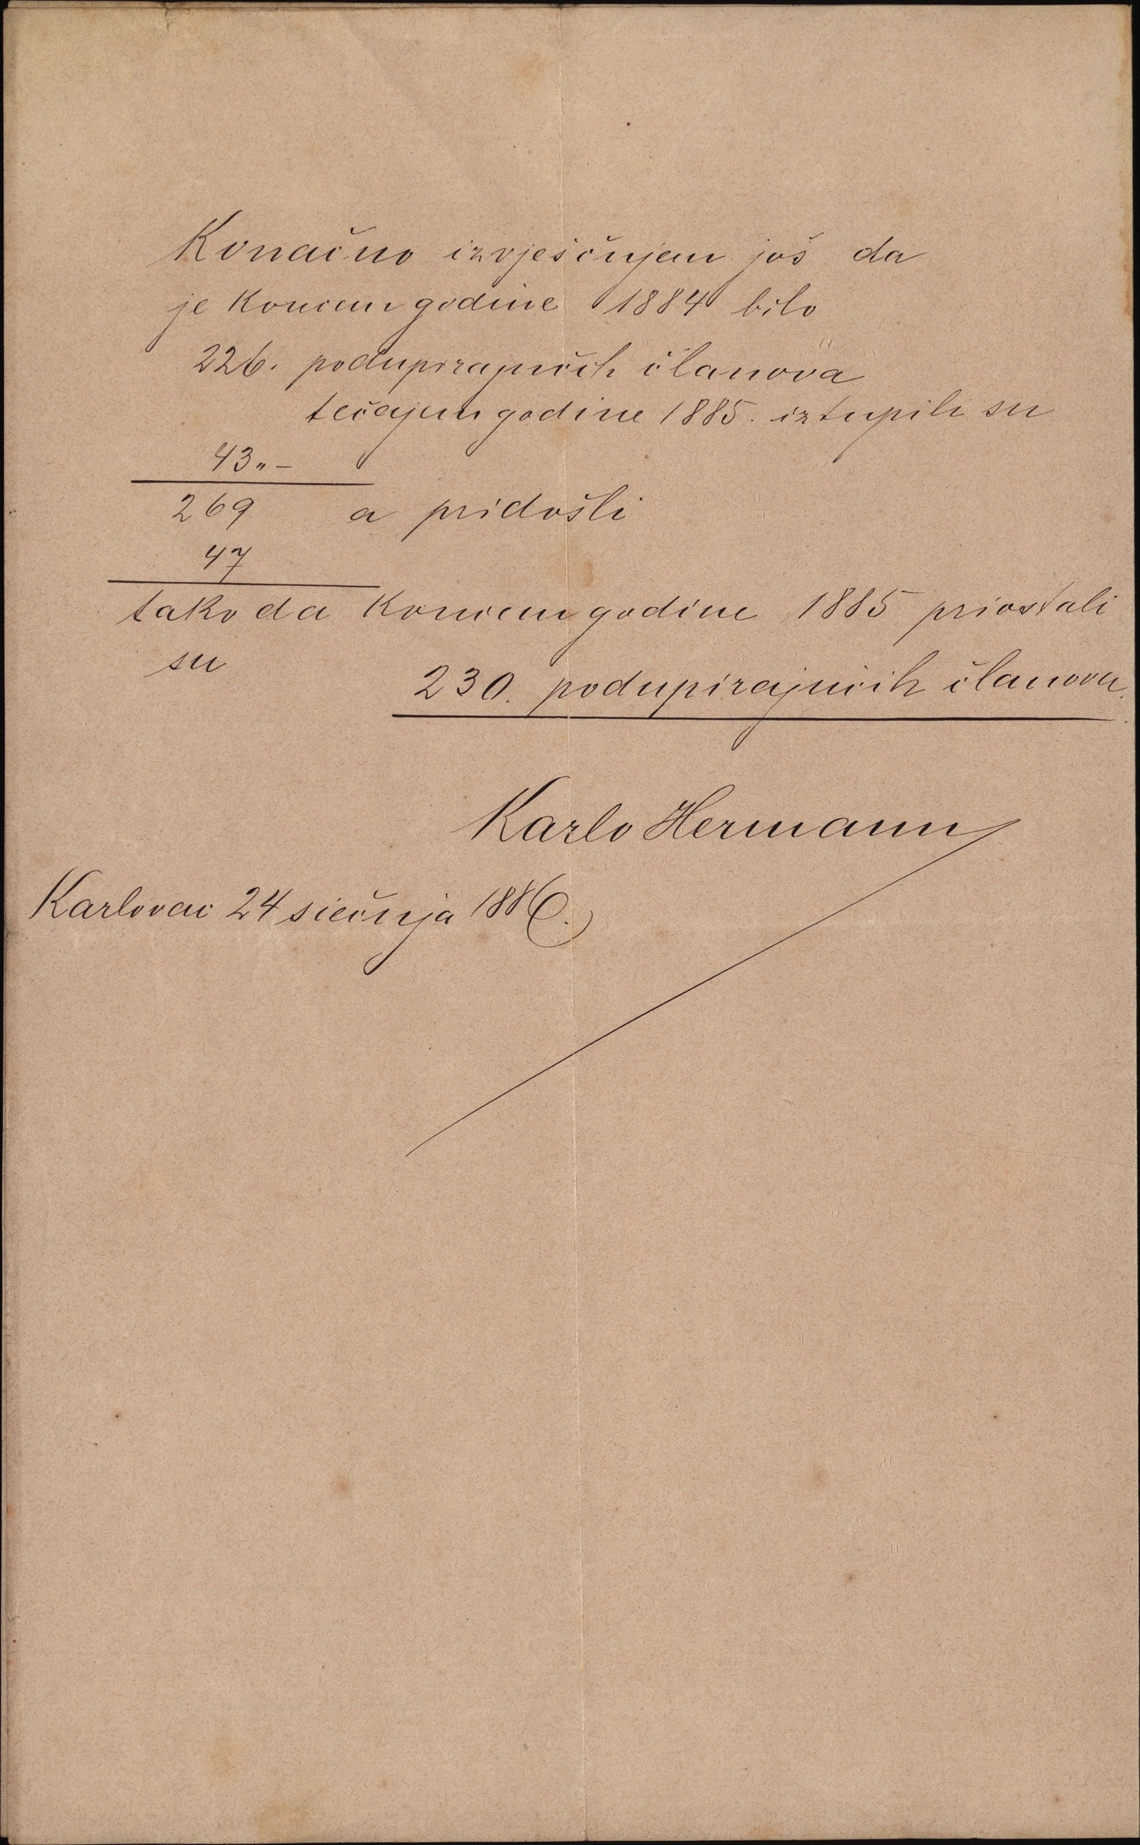 Konačno izvješćujem još da
je koncem godine 1884 bilo
226. podupirajućih članova
tečajem godine 1885. iztupili su
43 „ –
269 a pridošli
47
tako da koncem godine 1885 priostali
su
230. podupirajućih članova.
Karlo Hermann
Karlovac 24 siečnja 1886.